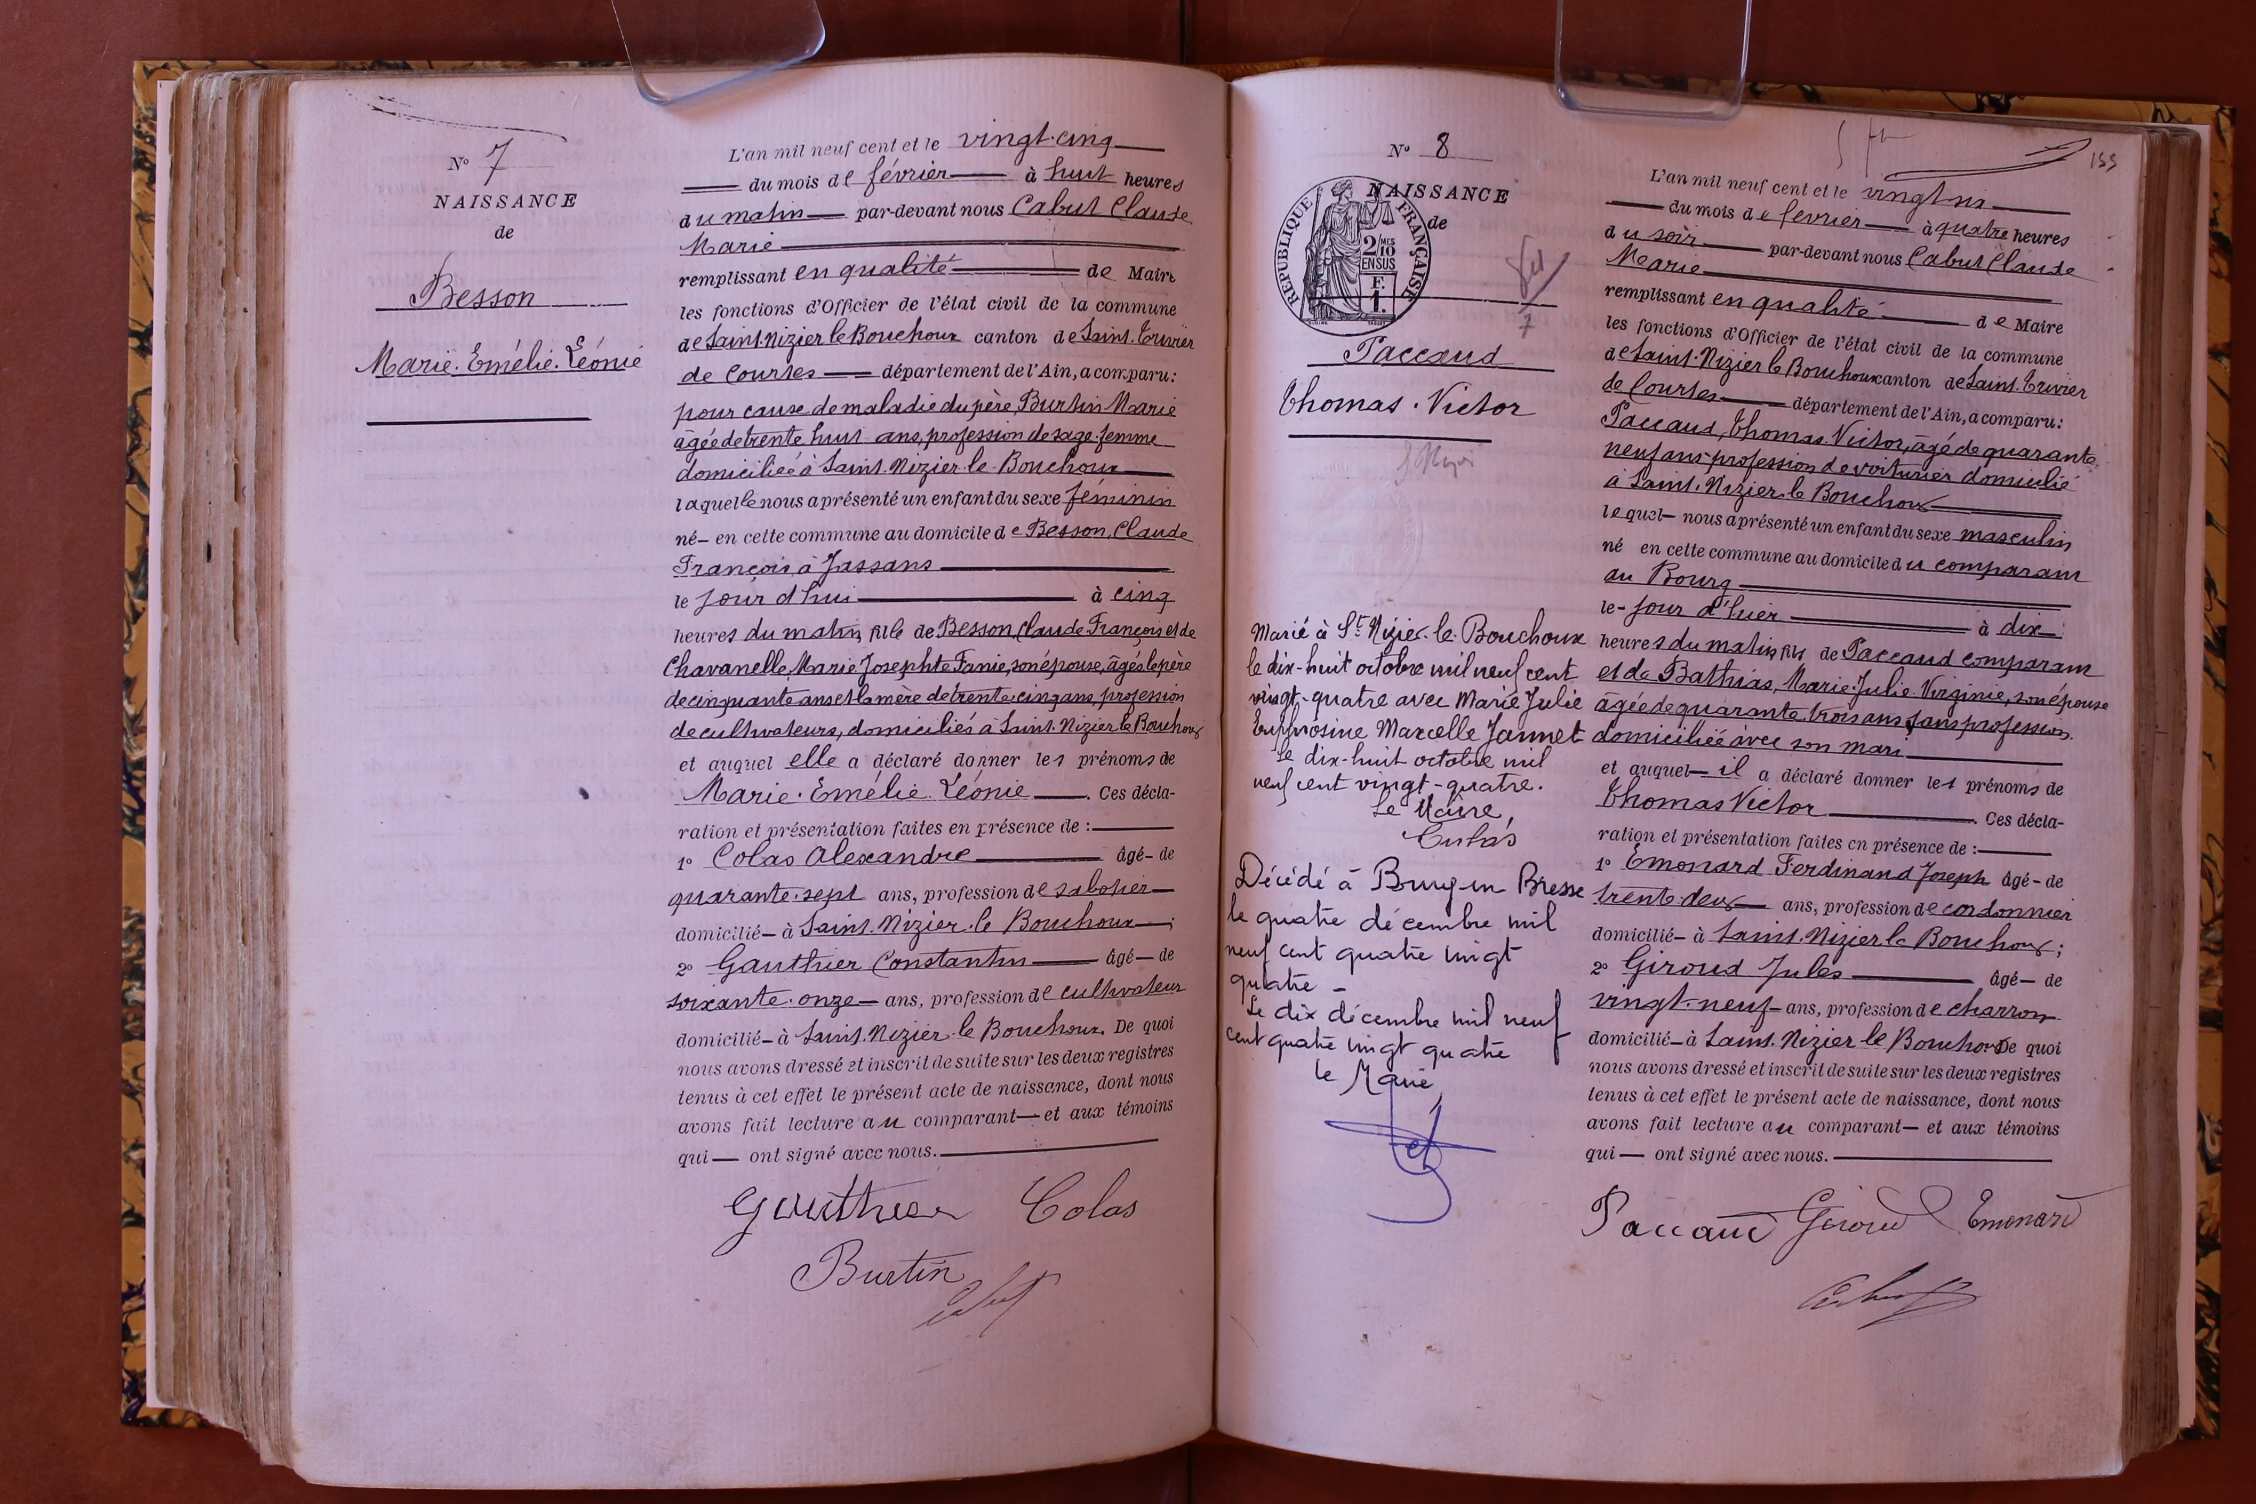 N° 7
NAISSANCE
de
Besson
Marie. Emélie. Léonie
L'an mil neuf cent et le vingt-cinq
du mois de février à huit heures
du matin par-devant nous Cabut Claude
Marie
remplissant en qualité de Maire
les fonctions d'Officier de l'état civil de la commune
de Saint. Nizier le Bouchoux canton de Saint. Trivier
de Courtes département de l'Ain, a comparu:
pour cause de maladie du père, Burtin Marie
âgée de trente huit ans, profession de sage-femme
domiciliée à Saint. Nizier le Bouchoux
laquelle nous a présenté un enfant du sexe féminin
né- en cette commune au domicile de Besson, Claude
François à Jassans
le jour d'hui à cinq
heures du matin, fille de Besson, Claude François et de
Chavanelle, Marie Josephte Fanie, son épouse, âgés le père
de cinquante ans et la mère de trente-cinq ans, profession
de cultivateurs, domiciliés à Saint. Nizier le Bouchoux
et auquel elle a déclaré donner les prénoms de
Marie. Emélie. Léonie. Ces décla-
ration et présentation faites en présence de :
1° Colas Alexandre âgé- de
quarante-sept ans, profession de sabotier
domicilié- à Saint. Nizier. le Bouchoux ;
2° Gauthier Constantin âgé- de
soixante-onze ans, profession de cultivateur
domicilié- à Saint. Nizier le Bouchoux. De quoi
nous avons dressé et inscrit de suite sur les deux registres
tenus à cet effet le présent acte de naissance, dont nous
avons fait lecture au comparant- et aux témoins
qui- ont signé avec nous.
Gauthier Colas
Burtin
Cabut
N° 8
NAISSANCE
de
REPUBLIQUE FRANÇAISE
2 MES
10
EN SUS
F.
1.
Paccaud
Thomas. Victor
Marié à St Nizier-le-Bouchoux
le dix-huit octobre mil neuf cent
vingt-quatre avec Marie Julie
Euphrosine Marcelle Jannet
Le dix-huit octobre mil
neuf cent vingt-quatre.
Le Maire,
Décédé à Bourg-en Bresse
le quatre décembre mil
neuf cent quatre vingt
quatre -
Le dix décembre mil neuf
cent quatre vingt quatre
le Maire,
155
L'an mil neuf cent et le vingt six
du mois de février à quatre heures
du soir par-devant nous Cabut Claude
Marie
remplissant en qualité de Maire
les fonctions d'Officier de l'état civil de la commune
de Saint. Nizier le Bouchoux canton de Saint. Trivier
de Courtes département de l'Ain, a comparu:
Paccaud, Thomas. Victor, âgé de quarante
neuf ans profession de voiturier domicilié
à Saint. Nizier le Bouchoux
lequel- nous a présenté un enfant du sexe masculin
né en cette commune au domicile du comparant
au Bourg
le- jour d'hier à dix
heures du matin, fils de Paccaud comparant
et de Bathias, Marie. Julie. Virginie, son épouse
âgée de quarante trois ans sans profession
domiciliée avec son mari
et auquel- il a déclaré donner les prénoms de
Thomas Victor. Ces décla-
ration et présentation faites en présence de :
1° Emonard Ferdinand Joseph âgé- de
trente-deux ans, profession de cordonnier
domicilié- à Saint. Nizier le Bouchoux;
2° Giroud Jules âgé- de
vingt-neuf- ans, profession de charron
domicilié- à Saint. Nizier le Bouchoux De quoi
nous avons dressé et inscrit de suite sur les deux registres
tenus à cet effet le présent acte de naissance, dont nous
avons fait lecture au comparant- et aux témoins
qui- ont signé avec nous.
Paccaud Giroud Emonard
Cabut